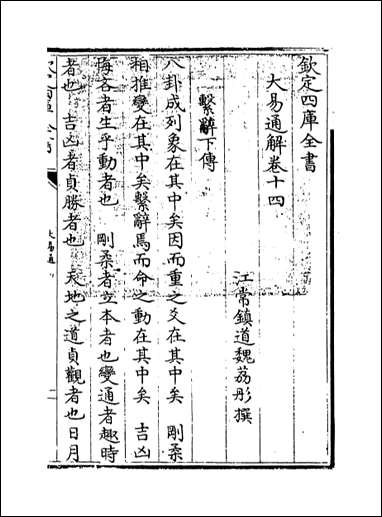 欽定四庫全書
大易通解卷十四
江常鎮道魏荔彤撰
繫辭下傳
八卦成列象在其中矣因而重之爻在其中矣 剛柔
相推變在其中矣繫辭焉而命之動在其中矣 吉凶
悔吝者生乎動者也 剛柔者立本者也變通者趣時
者也 吉凶者貞勝者也 天地之道貞觀者也日月
大易通